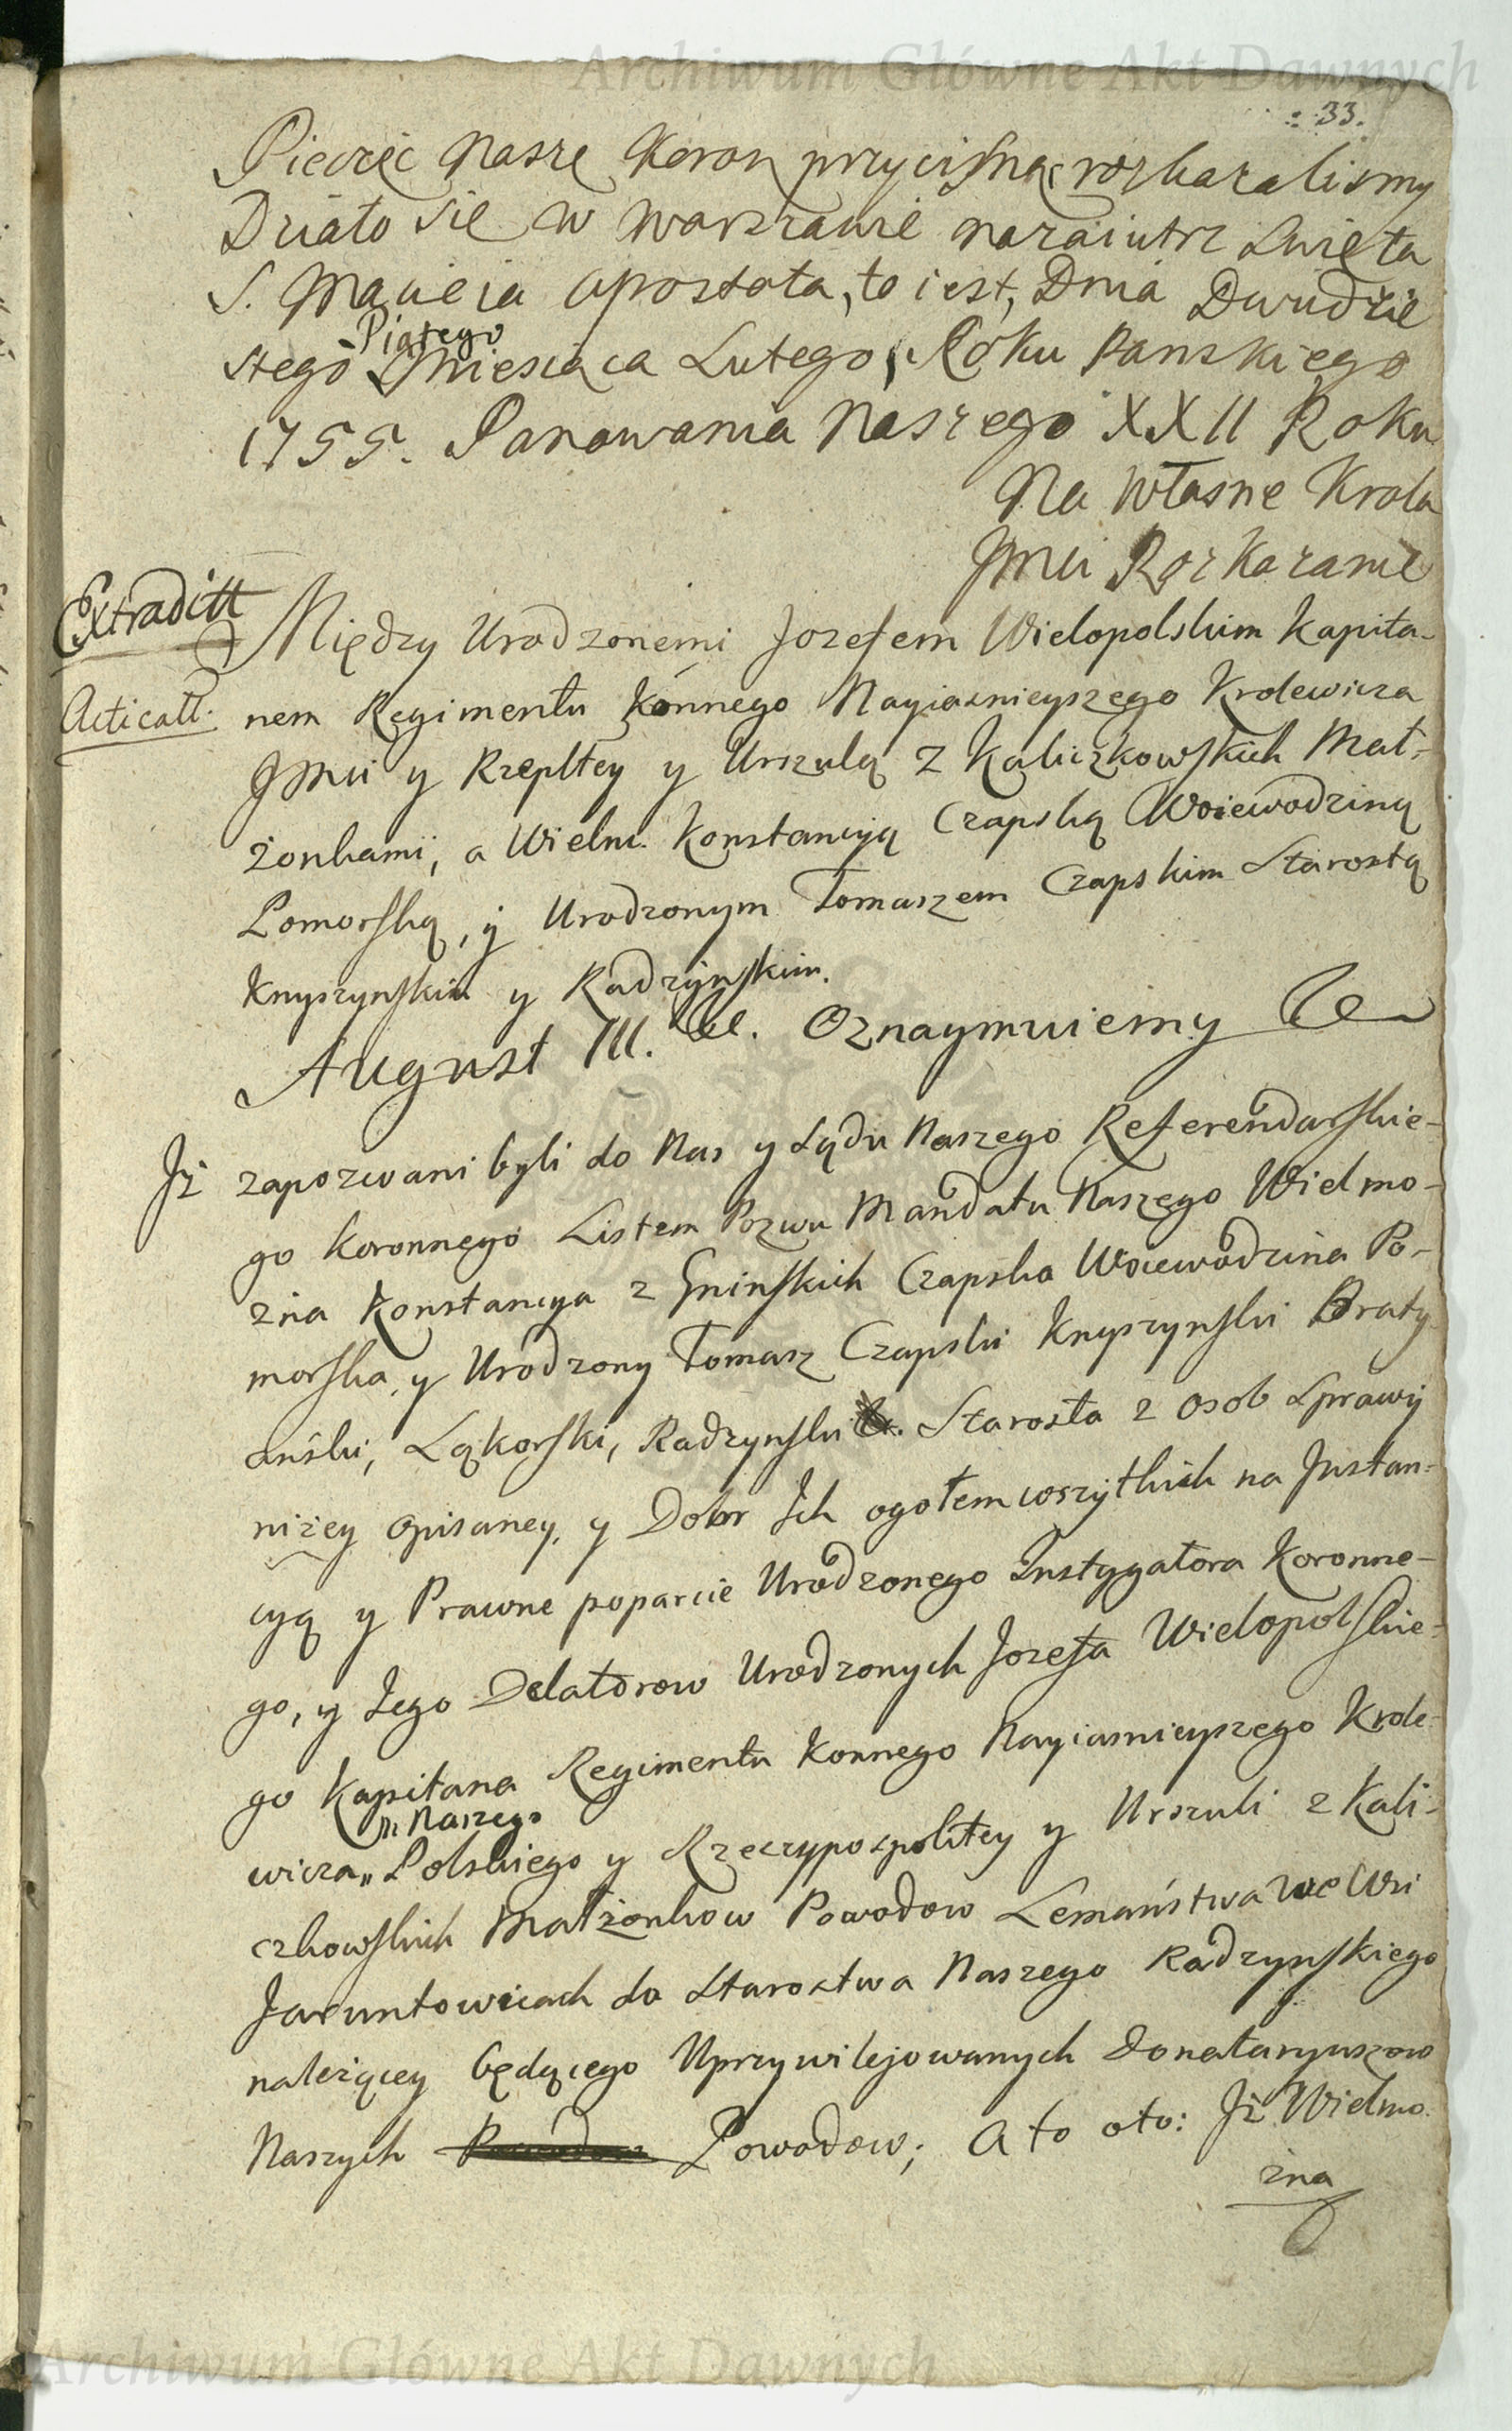 Archiwum Główne Akt Dawnych
33.
Pieczęc Nasze Koron przycisnąc rozkazalismy
Działo się w Warszawie nazaiutrz Swięta
S. Macieia Apostoła, to iest, Dnia Dwudzie
stego Piątego Miesiąca Lutego, Roku Panskiego
1755. Panowania Naszego XXII Roku
Na własne Krola
Jmci Rozkazanie
Extraditt
Między Urodzonemi Jozefem Wielopolskim Kapita-
Acticatt.
nem Regimentu Konnego Nayiasnieyszego Krolewicza
Jmci y Rzepltey y Urszulą z Kaliczkowskich Mał-
żonkami, a Wielm. Konstancyą Czapską Woiewodziną
Pomorską, y Urodzonym Tomaszem Czapskim Starostą
Knyszynskim y Radzynskim.
August III. &c. Oznaymuiemy &c
Jż zapozwani byli do Nas y Sądu Naszego Referendarskie-
go Koronnego Listem Pozwu Mandatu Naszego Wielmo-
zna Konstancya z Gninskich Czapska Woiewodzina Po-
morska, y Urodzony Tomasz Czapski Knyszynski Braty
anski, Ląkorski, Radzynski Starosta z osob Sprawy
niżey opisaney, y Dobr Ich ogołem wszytkich na Jnstan-
cyą y Prawne poparcie Urodzonego Instygatora Koronne-
go, y Jego Delatorow Urodzonych Jozefa Wielopolskie-
go Kapitana Regimentu Konnego Nayiasnieyszego Krole-
wicza Naszego Polskiego y Rzeczypospolitey y Urszuli z Kali-
czkowskich Małżonkow Powodow Lemaństwa we Wsi
Jaruntowicach do Starostwa Naszego Radzynskiego
należącey będącego Uprzywilejowanych Donataryuszow
Naszych Powodow; A to oto: Jż Wielmo
żna
Archiwum Główne Akt Dawnych